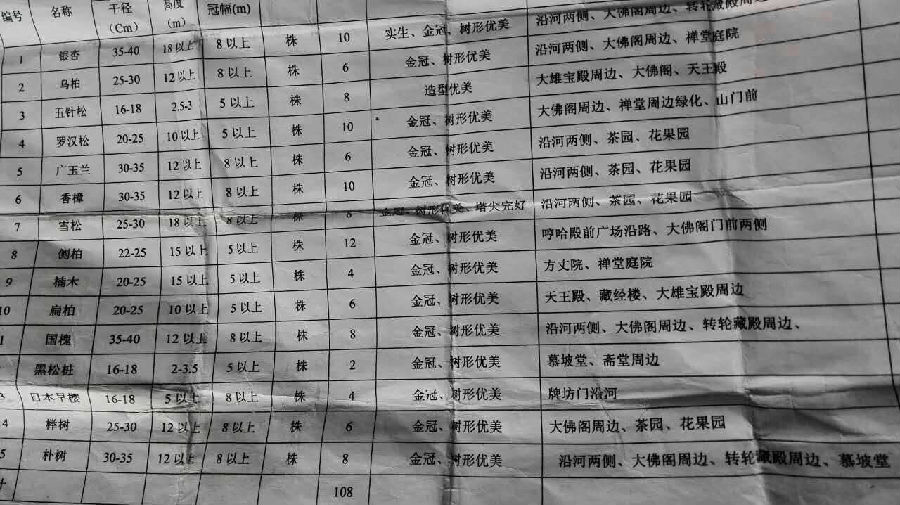 编号 名称 干径（Cm） 高度（m） 冠幅(m)
1 银杏 35-40 18以上 8以上 株 10 实生、金冠、树形优美 沿河两侧、大佛阁周边、转轮藏殿周边
2 乌柏 25-30 12以上 8以上 株 6 金冠、树形优美 沿河两侧、大佛阁周边、禅堂庭院
3 五针松 16-18 2.5-3 5以上 株 8 造型优美 大雄宝殿周边、大佛阁、天王殿
4 罗汉松 20-25 10以上 5以上 株 10 金冠、树形优美 大佛阁周边、禅堂周边绿化、山门前
5 广玉兰 30-35 12以上 8以上 株 6 金冠、树形优美 沿河两侧、茶园、花果园
6 香樟 30-35 12以上 8以上 株 10 金冠、树形优美 沿河两侧、茶园、花果园
7 雪松 25-30 18以上 8以上 株 8 金冠、树形优美、塔尖完好 沿河两侧、茶园、花果园
8 侧柏 22-25 15以上 5以上 株 12 金冠、树形优美 哼哈殿前广场沿路、大佛阁门前两侧
9 楠木 20-25 15以上 5以上 株 4 金冠、树形优美 方丈院、禅堂庭院
10 扁柏 20-25 10以上 5以上 株 6 金冠、树形优美 天王殿、藏经楼、大雄宝殿周边
1 国槐 35-40 12以上 8以上 株 8 金冠、树形优美 沿河两侧、大佛阁周边、转轮藏殿周边、
黑松桩 16-18 2-3.5 5以上 株 2 金冠、树形优美 慕坡堂、斋堂周边
3 日本早樱 16-18 5以上 8以上 株 4 金冠、树形优美 牌坊门沿河
4 榉树 25-30 12以上 8以上 株 6 金冠、树形优美 大佛阁周边、茶园、花果园
5 朴树 30-35 12以上 8以上 株 8 金冠、树形优美 沿河两侧、大佛阁周边、转轮藏殿周边、慕坡堂
108